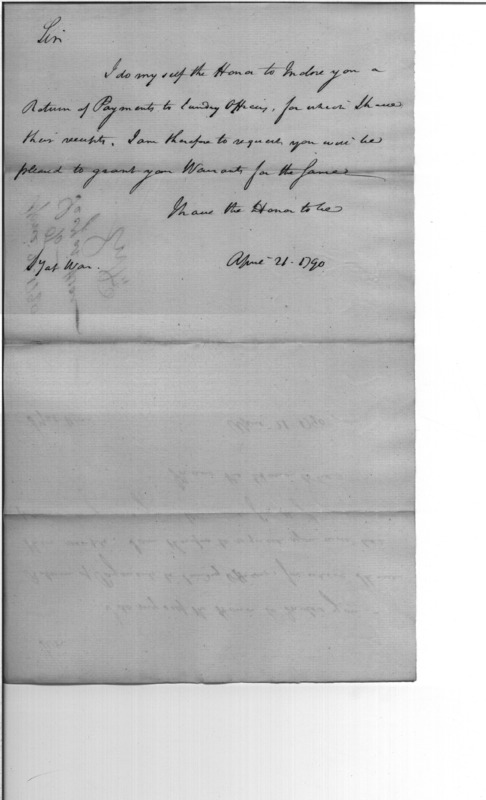 Sir
I do my self the Honor to Inclose you a
Return of Payments to Sundry Officers, for which I have
their receipts. I am therefore to request you will be
pleased to grant your Warrants for the Same
I have the Honor to be
Sy at War. April 21. 1790